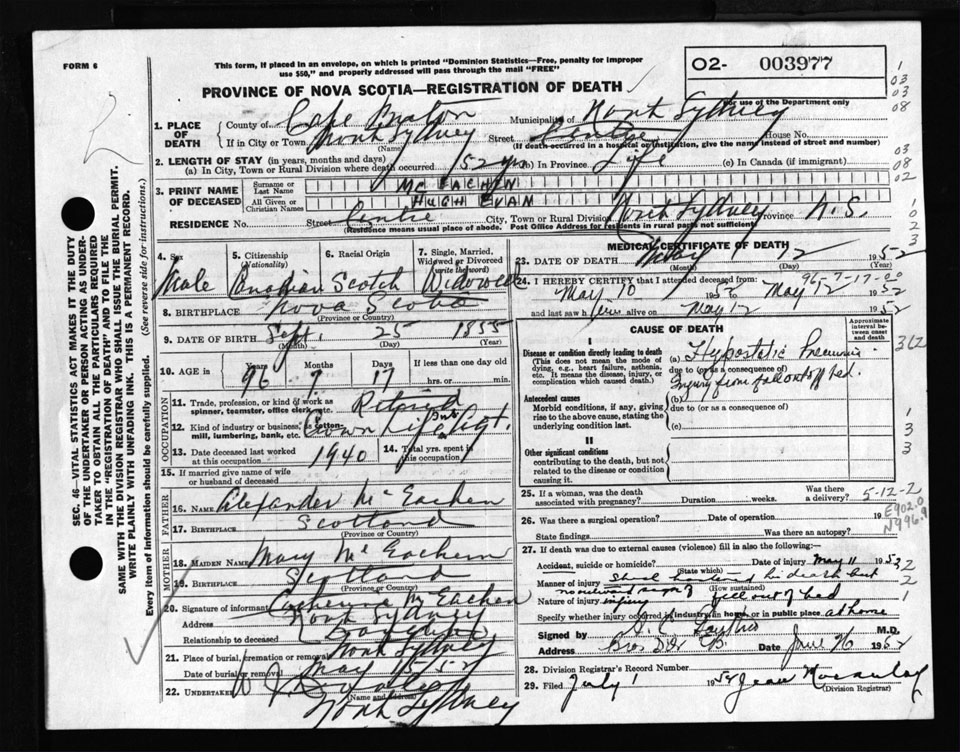 FORM 6
This form, if placed in an envelope, on which is printed "Dominion Statistics—Free, penalty for improper
use $50," and properly addressed will pass through the mail "FREE"
O2- 003977
For use of the Department only
PROVINCE OF NOVA SCOTIA—REGISTRATION OF DEATH
1. PLACE OF DEATH
County of Cape Breton Municipality of North Sydney
If in City or Town North Sydney Street Centre House No.
(Name) (If death occurred in a hospital or institution, give the name instead of street and number)
2. LENGTH OF STAY (in years, months and days)
(a) In City, Town or Rural Division where death occurred 52 yrs (b) In Province Life (c) In Canada (if immigrant)
3. PRINT NAME OF DECEASED
Surname or Last Name Mc EACHEN
All Given or Christian Names HUGH EVAN
RESIDENCE No. Street Centre City, Town or Rural Division North Sydney Province N.S.
(Residence means usual place of abode. Post Office Address for residents in rural part not sufficient)
4. Sex Male
5. Citizenship (Nationality) Canadian
6. Racial Origin Scotch
7. Single, Married, Widowed or Divorced (write the word) Widowed
8. BIRTHPLACE Nova Scotia
(Province or Country)
9. DATE OF BIRTH Sept. 25 1855
(Month) (Day) (Year)
10. AGE in Years Months Days If less than one day old
96 7 17 hrs. or min.
OCCUPATION
11. Trade, profession, or kind of work as spinner, teamster, office clerk, etc. Retired
12. Kind of industry or business, as cotton mill, lumbering, bank, etc. Crown Life Ins Agt.
13. Date deceased last worked at this occupation 1940
14. Total yrs. spent in this occupation
15. If married give name of wife or husband of deceased
FATHER
16. NAME Alexander McEachen
17. BIRTHPLACE Scotland
(Province or Country)
MOTHER
18. MAIDEN NAME Mary McEachern
19. BIRTHPLACE Scotland
(Province or Country)
20. Signature of informant Catherine McEachen
Address North Sydney
Relationship to deceased Daughter
21. Place of burial, cremation or removal North Sydney
Date of burial or removal May 15 52
22. UNDERTAKER W J
(Name and Address)
North Sydney
MEDICAL CERTIFICATE OF DEATH
23. DATE OF DEATH May 12 1952
(Month) (Day) (Year)
96-7-17-00
24. I HEREBY CERTIFY that I attended deceased from:
May 10 1952 to May 12 1952
and last saw him alive on May 12 1952
CAUSE OF DEATH
Approximate interval between onset and death
I
Disease or condition directly leading to death
(This does not mean the mode of dying, e.g., heart failure, asthenia, etc. It means the disease, injury, or complication which caused death.)
(a) Hypostatic Pneumonia
due to (or as a consequence of)
Injury from fall out of bed.
Antecedent causes
Morbid conditions, if any, giving rise to the above cause, stating the underlying condition last.
(b)
due to (or as a consequence of)
(c)
II
Other significant conditions
contributing to the death, but not related to the disease or condition causing it.
25. If a woman, was the death associated with pregnancy? Duration weeks. Was there a delivery?
5-12-2
26. Was there a surgical operation? Date of operation 19
State findings Was there an autopsy?
E902.0
N996.9
27. If death was due to external causes (violence) fill in also the following:—
Accident, suicide or homicide? Date of injury May 11 1952
(State which)
Manner of injury
(How sustained)
Nature of injury fell out of bed
Specify whether injury occurred in industry, in home or in public place at home
Signed by M.D.
Address Date June 26 1952
28. Division Registrar's Record Number
29. Filed July 1 1952 Jean
(Division Registrar)
SEC. 46—VITAL STATISTICS ACT MAKES IT THE DUTY
OF THE UNDERTAKER OR PERSON ACTING AS UNDER-
TAKER TO OBTAIN ALL THE PARTICULARS REQUIRED
IN THE "REGISTRATION OF DEATH" AND TO FILE THE
SAME WITH THE DIVISION REGISTRAR WHO SHALL ISSUE THE BURIAL PERMIT.
WRITE PLAINLY WITH UNFADING INK. THIS IS A PERMANENT RECORD.
Every item of information should be carefully supplied. (See reverse side for instructions.)
1
03
03
08
03
08
02
1
0
2
3
362
1
3
3